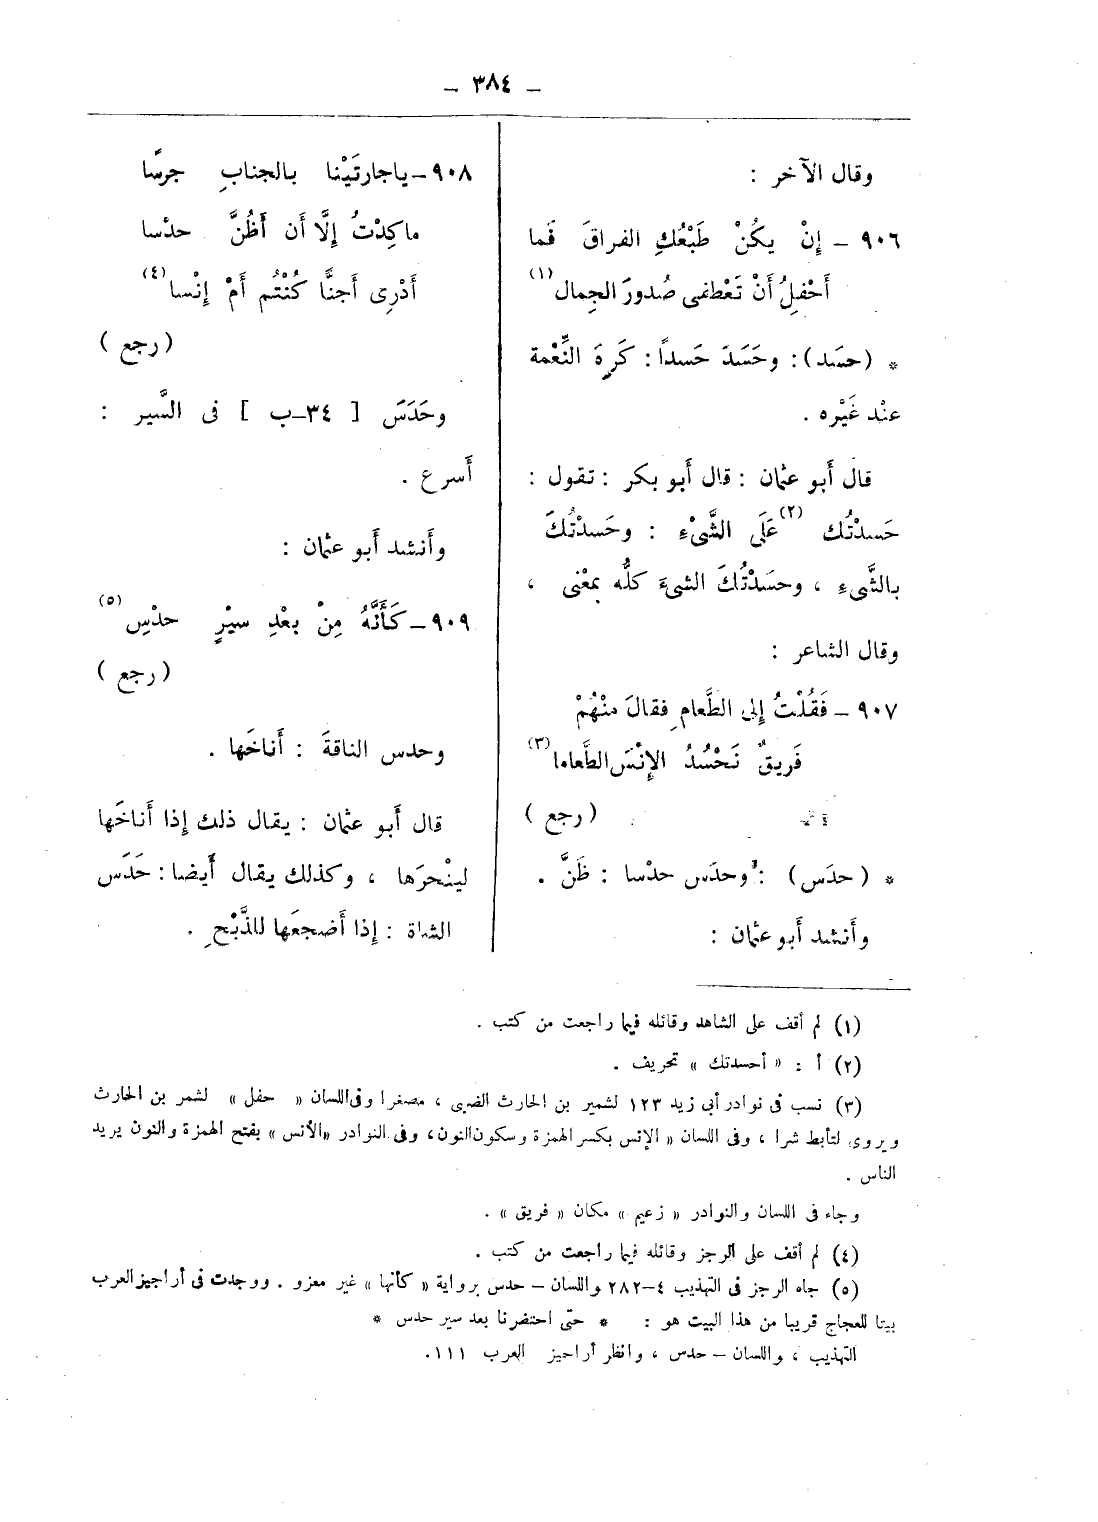 – ٣٨٤ –
وقال الآخر :
٩٠٦ – إِنْ يكُنْ طَبْعُكِ الفراقَ فَما
أَحْفِلُ أَنْ تَعْطفى صُدورَ الجِمال(١)
* (حسَد): وحَسَدَ حَسداً: كَرِهَ النِّعْمة
عنْد غَيْره .
قال أَبو عثمان : قال أَبو بكر : تقول :
حَسدْتُك (٢) عَلَى الشَّىْءِ : وحَسدْتُكَ
بالشَّىءِ ، وحسَدْتُكَ الشىءَ كلُّه بمعْنى ،
وقال الشاعر :
٩٠٧ – فَقُلْتُ إِلى الطَّعامِ فقالَ منْهُمْ
فَرِيقٌ نَحْسُدُ الإِنْسَ الطَّعاما(٣)
(رجع )
* (حدَس) : وحدَس حدْسا : ظَنَّ .
وأَنشد أَبو عثمان :
٩٠٨ – ياجارتَيْنا بالجنابِ جرسًا
ماكِدْتُ إِلَّا أَن أَظُنَّ حدْسا
أَدْرِى أَجنًّا كُنْتُم أَمْ إِنْسا(٤)
(رجع )
وحَدَسَ [ ٣٤–ب ] فى السَّير :
أَسرع .
وأَنشد أَبو عثمان :
٩٠٩ – كَأَنَّهُ مِنْ بعْدِ سيْرٍ حدْسِ(٥)
(رجع )
وحدس الناقةَ : أَناخَها .
قال أَبو عثمان : يقال ذلك إِذا أَناخَها
لينْحرَها ، وكذلك يقال أَيضا: حَدَسَ
الشاة : إِذا أَضجعَها للذَّبْحِ .
(١) لم أقف على الشاهد وقائله فيما راجعت من كتب .
(٢) أ : « أحسدتك » تحريف .
(٣) نسب فى نوادر أبى زيد ١٢٣ لشمير بن الحارث الضبى ، مصغرا وفى اللسان « حفل » لشمر بن الحارث
ويروى لتأبط شرا ، وفى اللسان « الإنس بكسر الهمزة وسكون النون، وفى النوادر «الأنس » بفتح الهمزة والنون يريد
الناس .
وجاء فى اللسان والنوادر « زعيم » مكان « فريق » .
(٤) لم أقف على الرجز وقائله فيما راجعت من كتب .
(٥) جاء الرجز فى التهذيب ٤–٢٨٢ واللسان – حدس برواية « كأنها » غير معزو . ووجدت فى أراجيز العرب
بيتا للعجاج قريبا من هذا البيت هو : * حتى احتضرنا بعد سير حدس *
التهذيب ، واللسان – حدس ، وانظر أراجيز العرب ١١١.